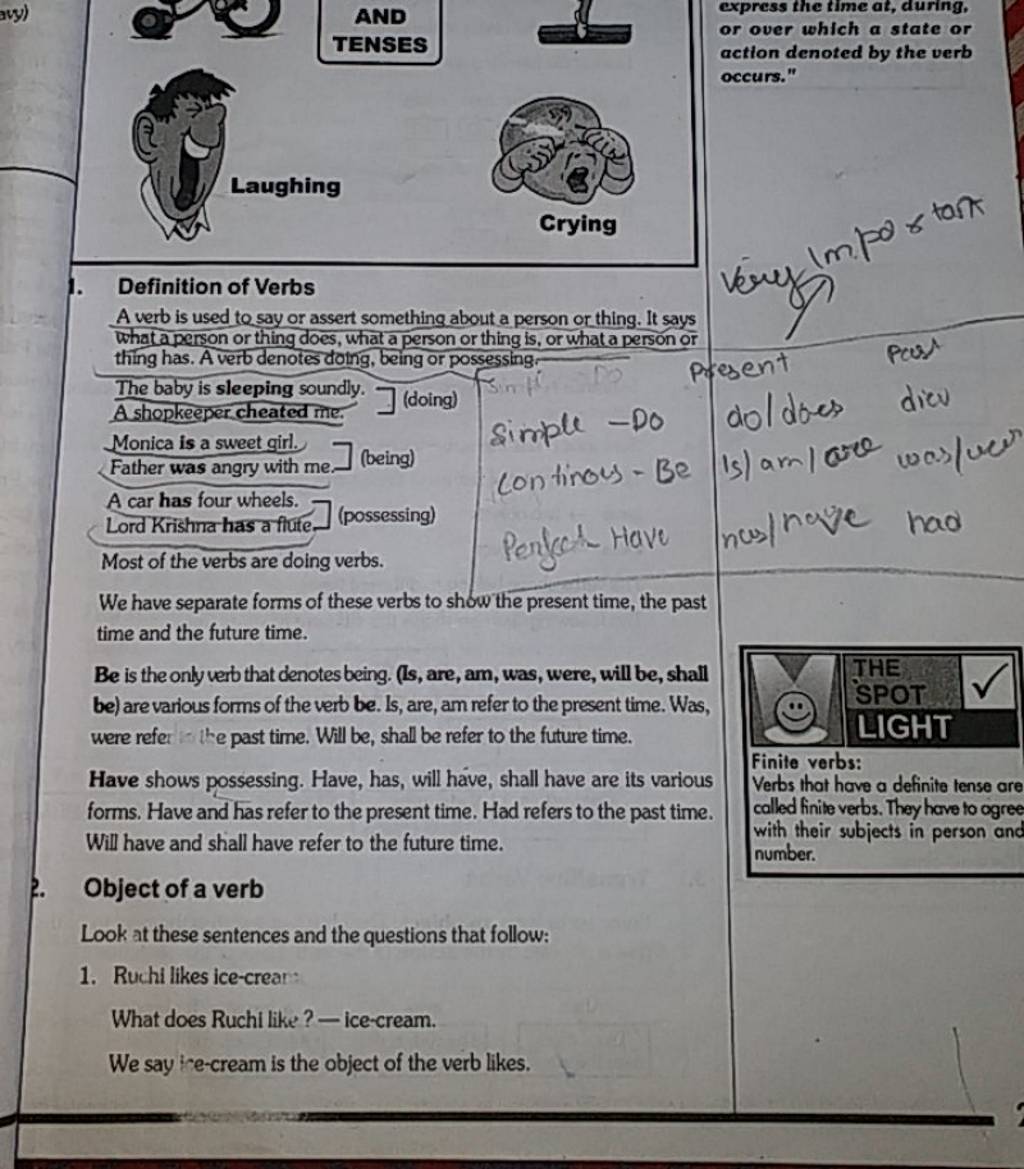 avy)
AND
TENSES
express the time at, during,
or over which a state or
action denoted by the verb
occurs."
Laughing
Crying
Very Important
1. Definition of Verbs
A verb is used to say or assert something about a person or thing. It says
what a person or thing does, what a person or thing is, or what a person or
thing has. A verb denotes doing, being or possessing.
The baby is sleeping soundly.
A shopkeeper cheated me.
(doing)
Monica is a sweet girl.
Father was angry with me.
(being)
A car has four wheels.
Lord Krishna has a flute.
(possessing)
Present Past
Simple - Do do/does
Continous - Be Is/am/are was/
Perfect Have has/have had
Most of the verbs are doing verbs.
We have separate forms of these verbs to show the present time, the past
time and the future time.
Be is the only verb that denotes being. (Is, are, am, was, were, will be, shall
be) are various forms of the verb be. Is, are, am refer to the present time. Was,
were refer the past time. Will be, shall be refer to the future time.
Have shows possessing. Have, has, will have, shall have are its various
forms. Have and has refer to the present time. Had refers to the past time.
Will have and shall have refer to the future time.
THE
SPOT
LIGHT
Finite verbs:
Verbs that have a definite tense are
called finite verbs. They have to agree
with their subjects in person and
number.
2. Object of a verb
Look at these sentences and the questions that follow:
1. Ruchi likes ice-cream
What does Ruchi like ? — ice-cream.
We say ice-cream is the object of the verb likes.